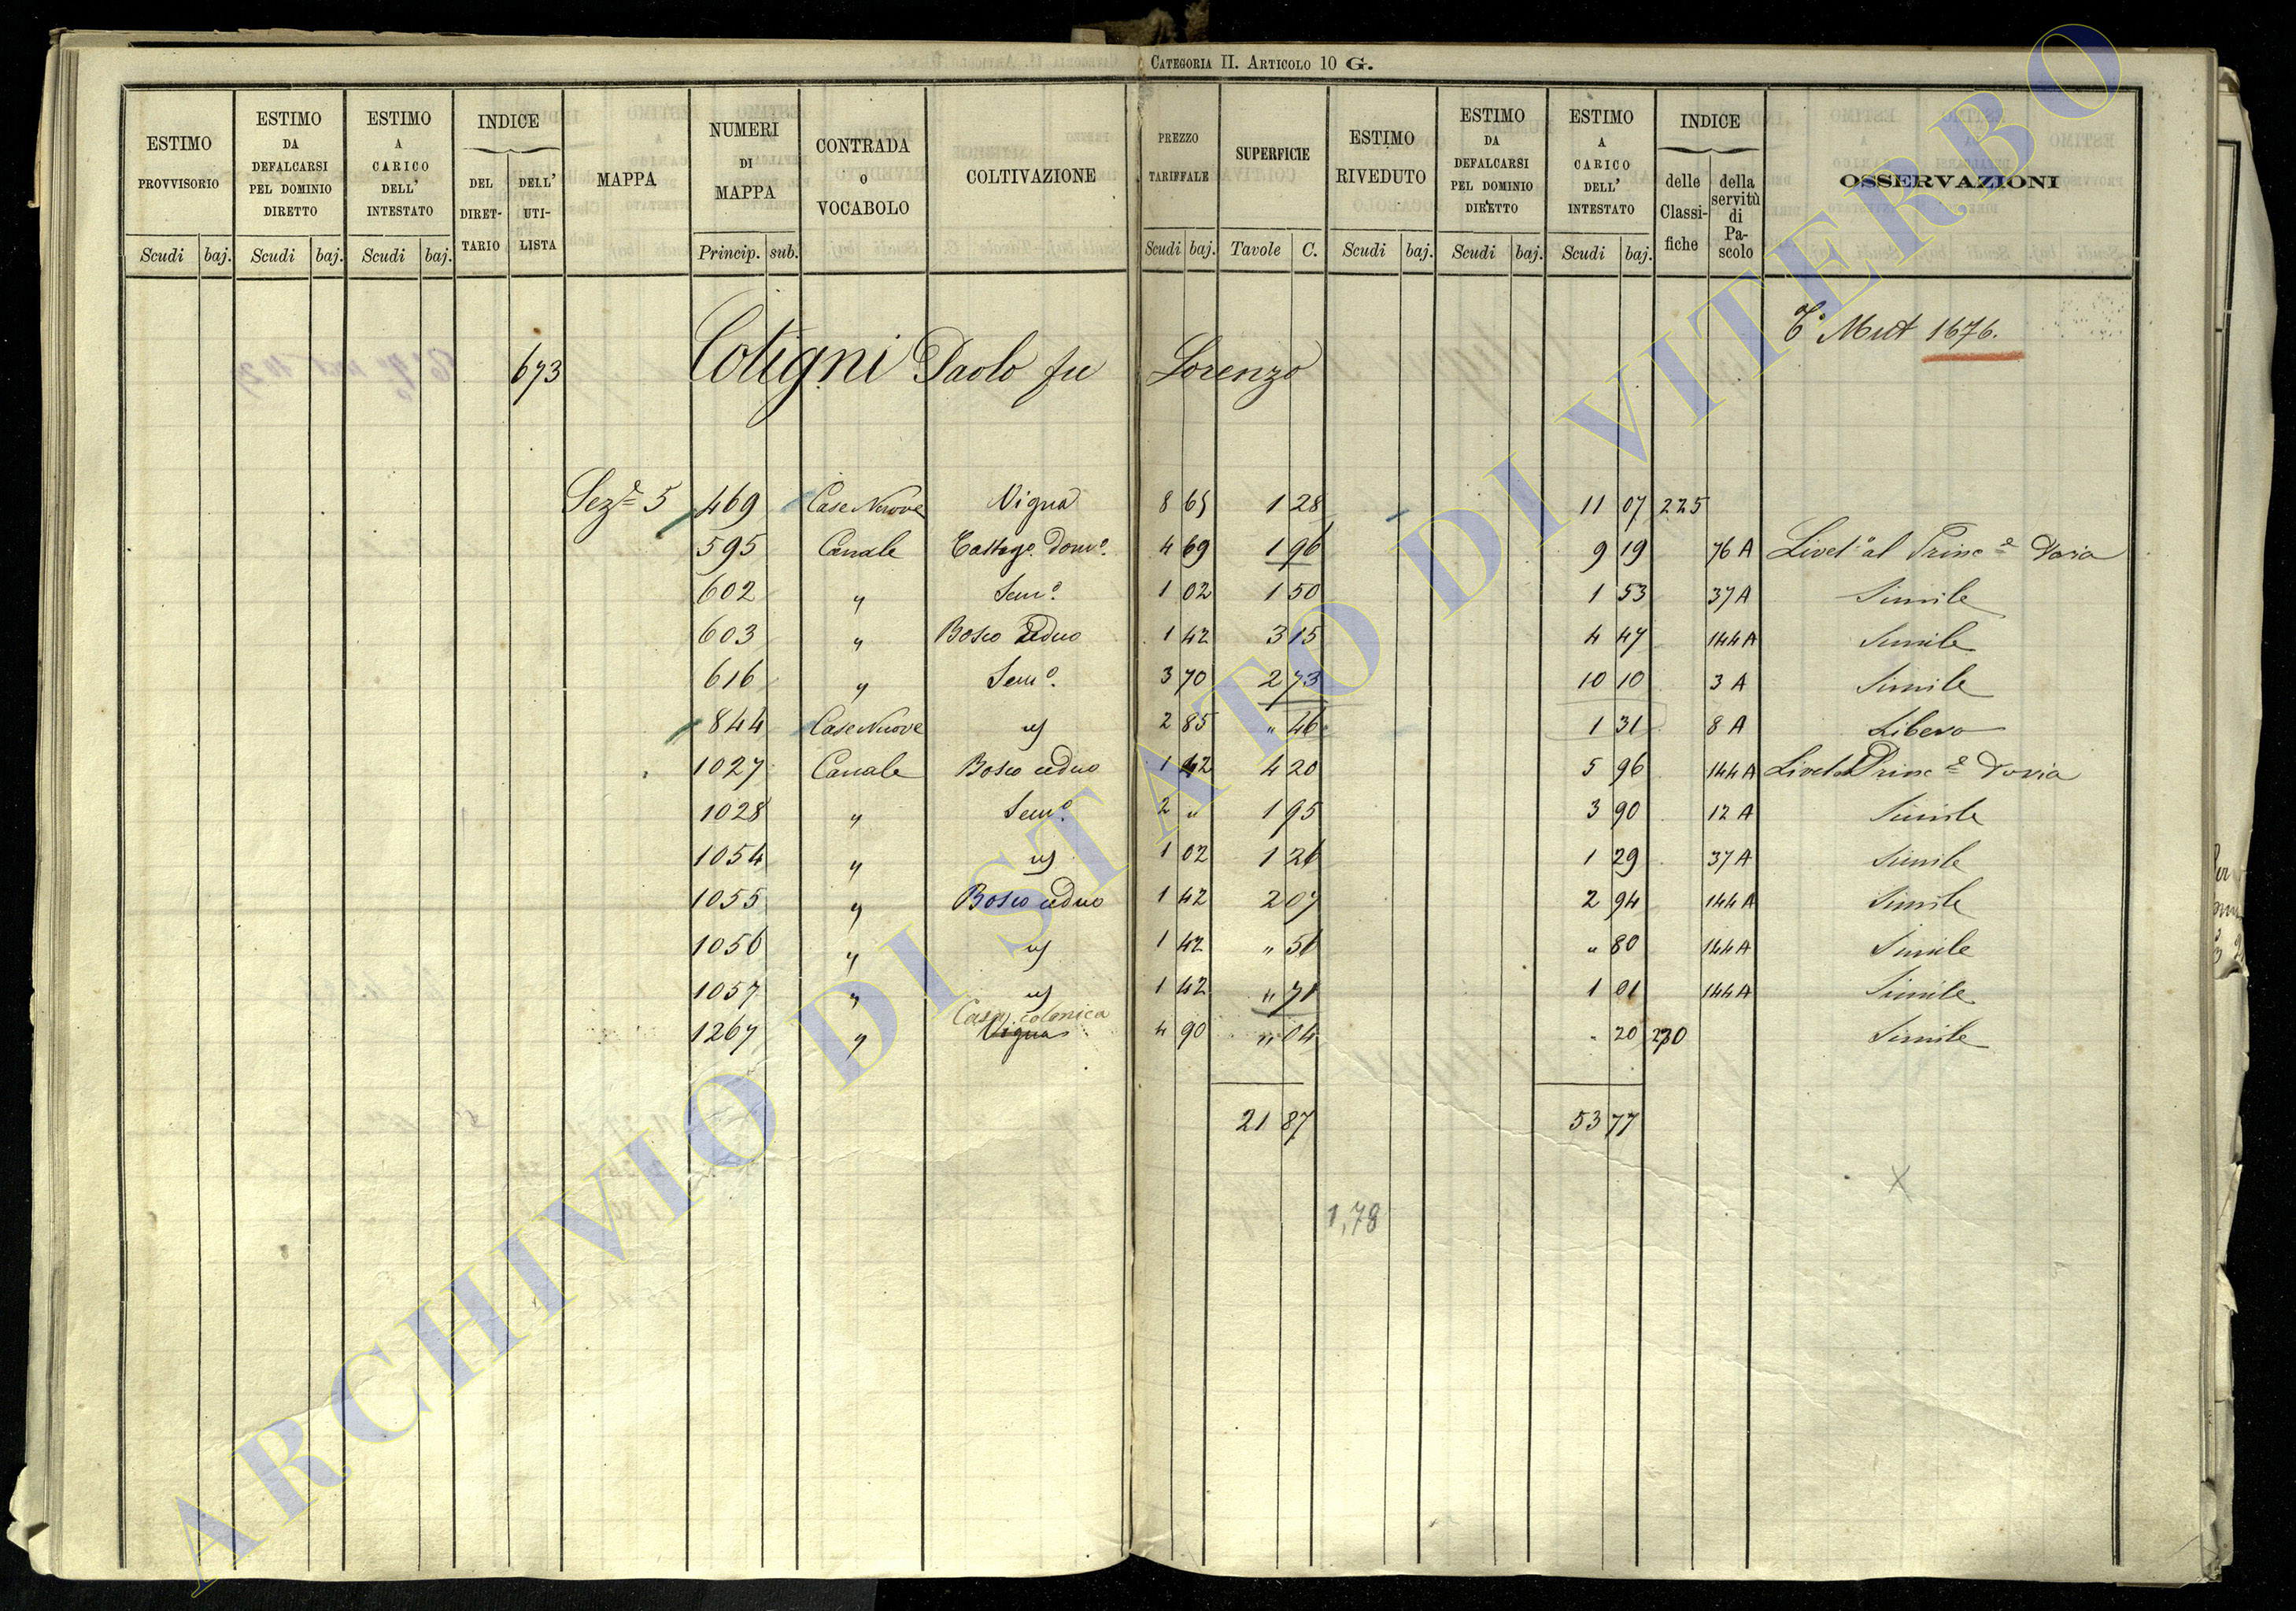 CATEGORIA II. ARTICOLO 10 G.
ESTIMO PROVVISORIO Scudi baj. | ESTIMO DA DEFALCARSI PEL DOMINIO DIRETTO Scudi baj. | ESTIMO A CARICO DELL' INTESTATO Scudi baj. | INDICE DEL DIRET-TARIO DELL' UTI-LISTA | MAPPA | NUMERI DI MAPPA Princip. sub. | CONTRADA O VOCABOLO | COLTIVAZIONE | PREZZO TARIFFALE Scudi baj. | SUPERFICIE Tavole C. | ESTIMO RIVEDUTO Scudi baj. | ESTIMO DA DEFALCARSI PEL DOMINIO DIRETTO Scudi baj. | ESTIMO A CARICO DELL' INTESTATO Scudi baj. | INDICE delle Classi-fiche della servitù di Pa-scolo | OSSERVAZIONI
Mut 1676.
673 Cotigni Paolo fu Lorenzo
Sez.e 5 469 Case Nuove Vigna 8 65 1 28 11 07 225
595 Canale Castag. Dom.o 4 69 1 96 9 19 76 A Livel.o al Princ.e Doria
602 " Sem.o 1 02 1 50 1 53 37 A Simile
603 " Bosco ceduo 1 42 3 15 4 47 144 A Simile
616 " Sem.o 3 70 2 73 10 10 3 A Simile
844 Case Nuove " 2 85 " 46 1 31 8 A Libero
1027 Canale Bosco ceduo 1 42 4 20 5 96 144 A Livel. Princ.e Doria
1028 " Sem.o 2 " 1 95 3 90 12 A Simile
1054 " " 1 02 1 26 1 29 37 A Simile
1055 " Bosco ceduo 1 42 2 07 2 94 144 A Simile
1056 " " 1 42 " 56 " 80 144 A Simile
1057 " " 1 42 " 71 1 01 144 A Simile
Casa colonica
1267 " Vigna 4 90 " 04 " 20 230 Simile
21 87 53 77
X
1,78
ARCHIVIO DI STATO DI VITERBO